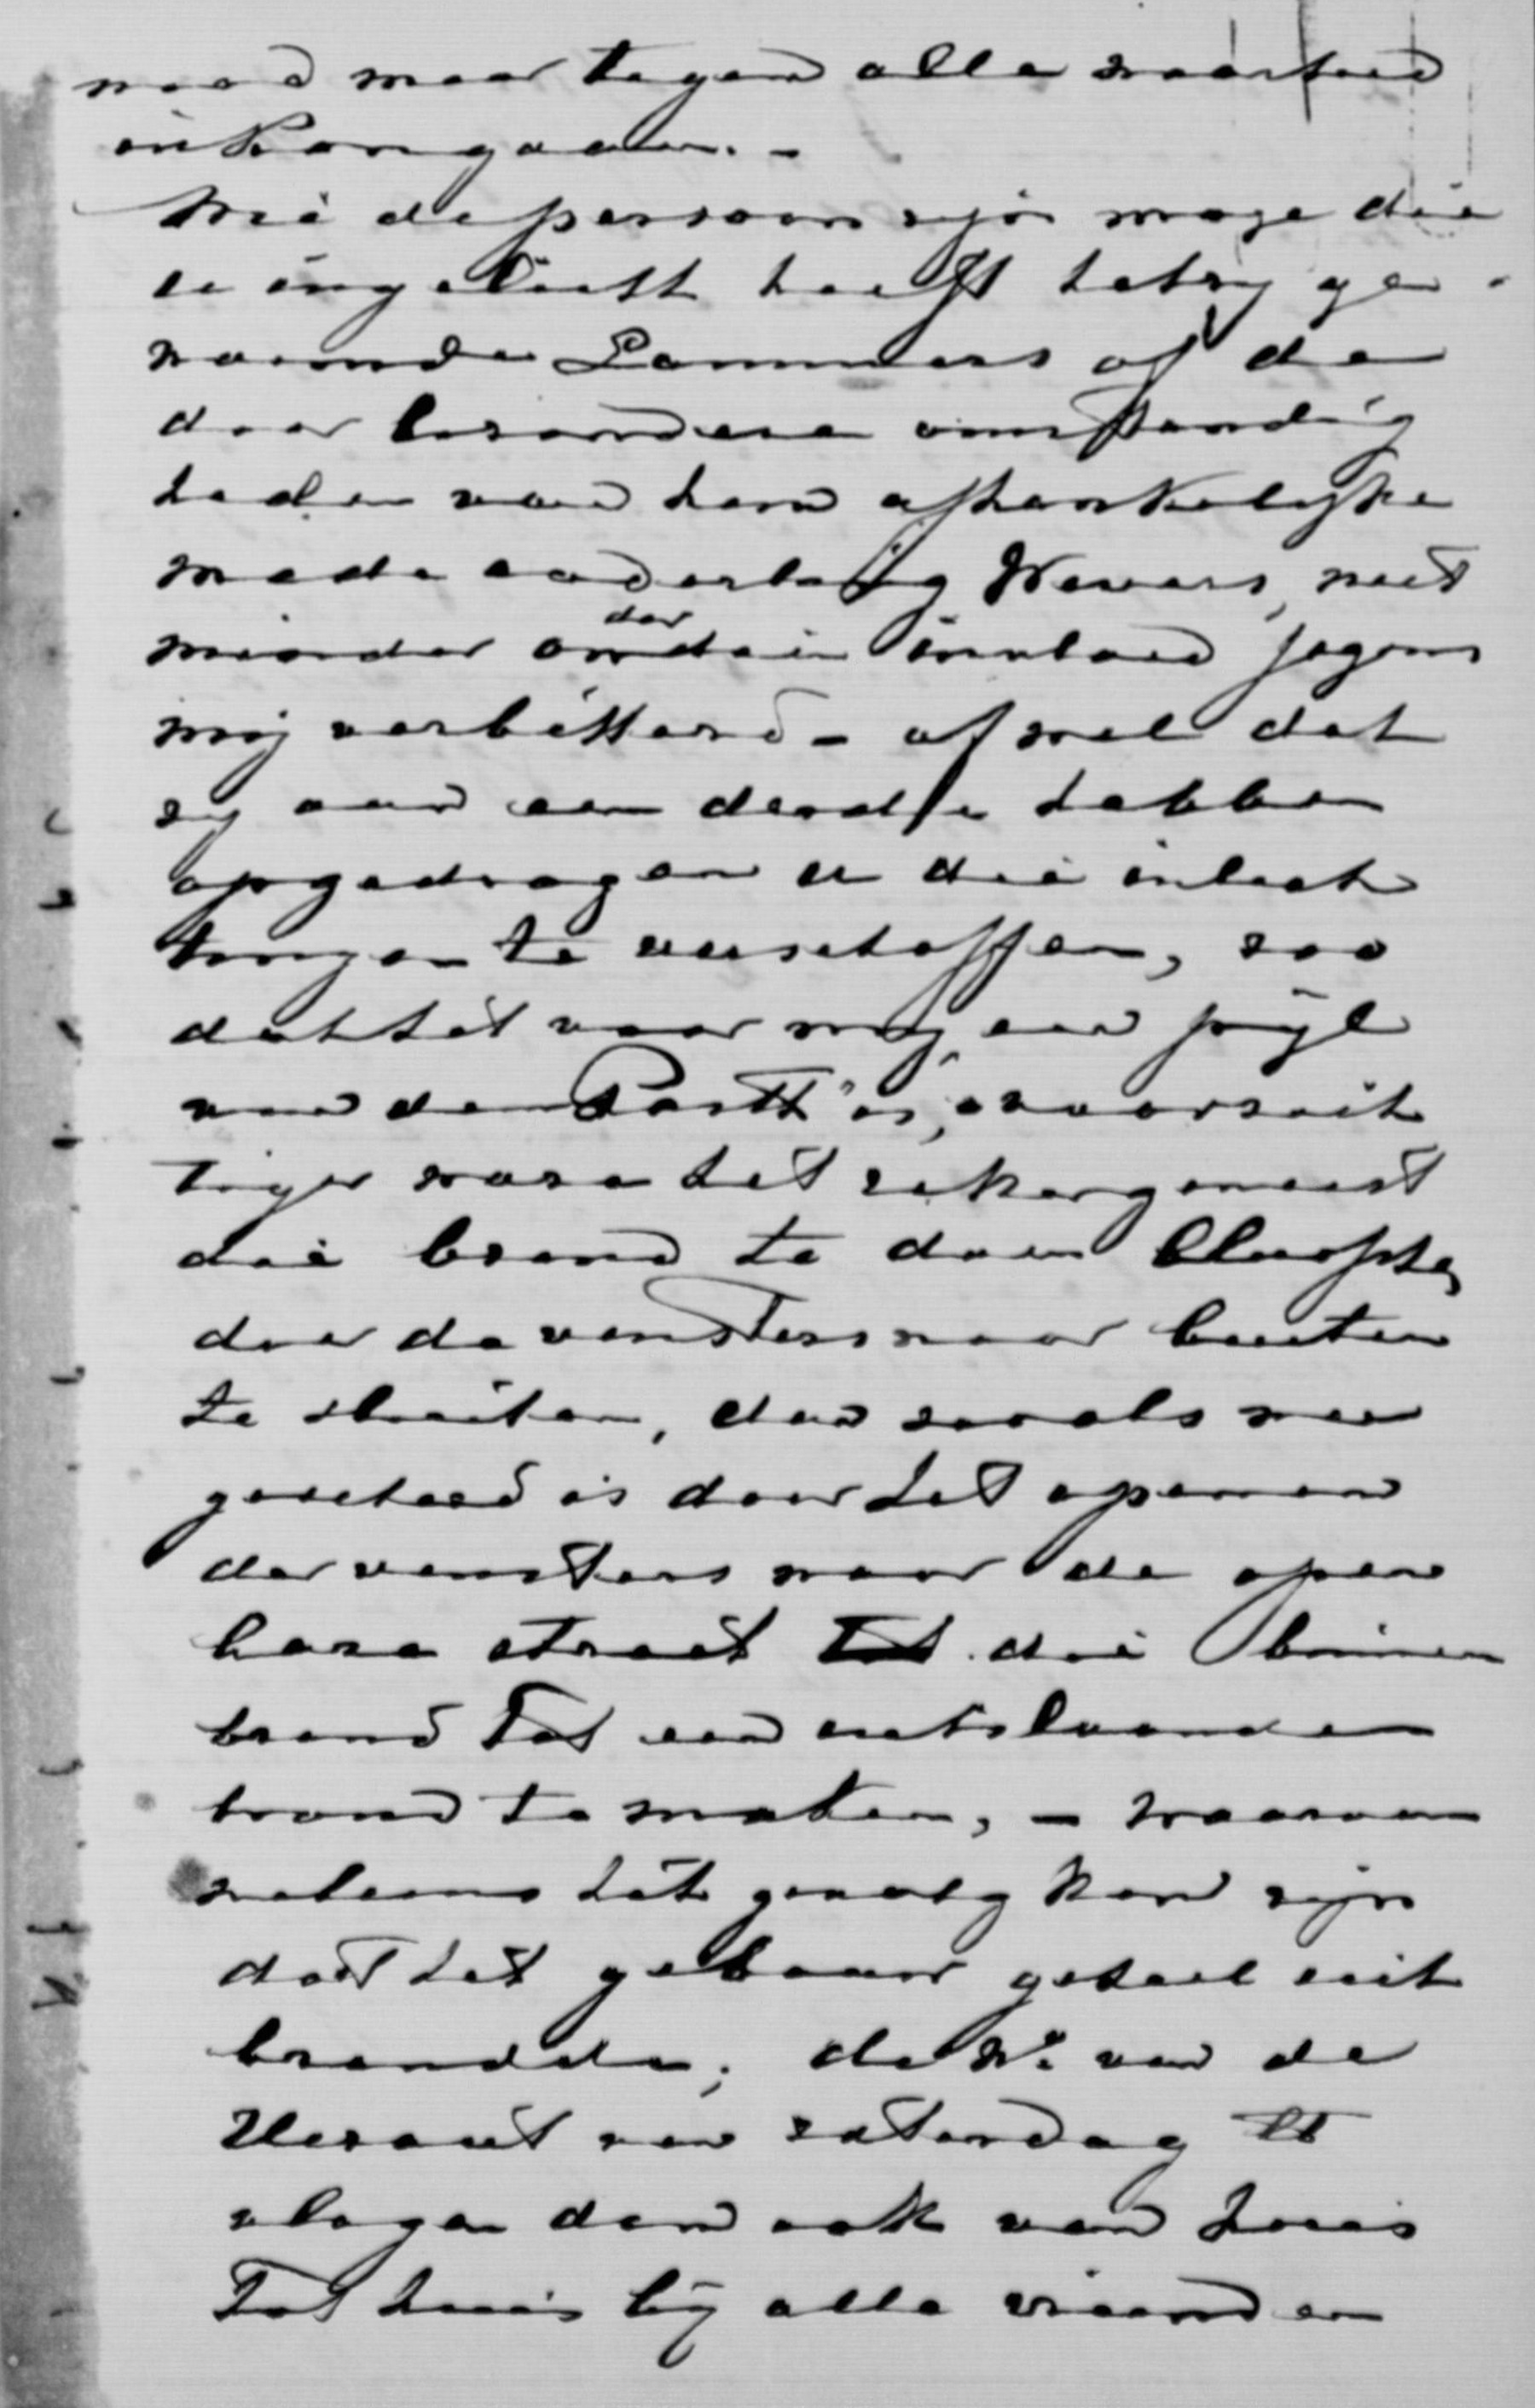 maar tegen alle waarheid
in kan gaan. -
Wie de persoon zijn moge die
u ingelicht heeft hetzij ge-
noemde Lammers of de
door bizondere omstandig
heden van hem afhankelijke
mede onderling Wevers, niet
minder om der dien inhoud jegens
mij verbitterd - of wel dat
zij aan een derde hebben
opgedragen u die inlich
tingen te verschaffen, zoo
dat het voor mij een pijl
van den Parth is, voorzich
tiger ware het zeker geweest
die brand te doen blusschen
door de vensters naar buiten
te sluiten, dan zooals nu
geschied is door het openen
der vensters naar de open
bare straat die binnen
brand tot een uitslaanden
brand te maken, - waarvan
weleens het gevolg kan zijn
dat het gebouw geheel uit
brandde; de Nos van de
Heraut van zaterdag
vlogen dan ook van huis
tot huis bij alle vrienden